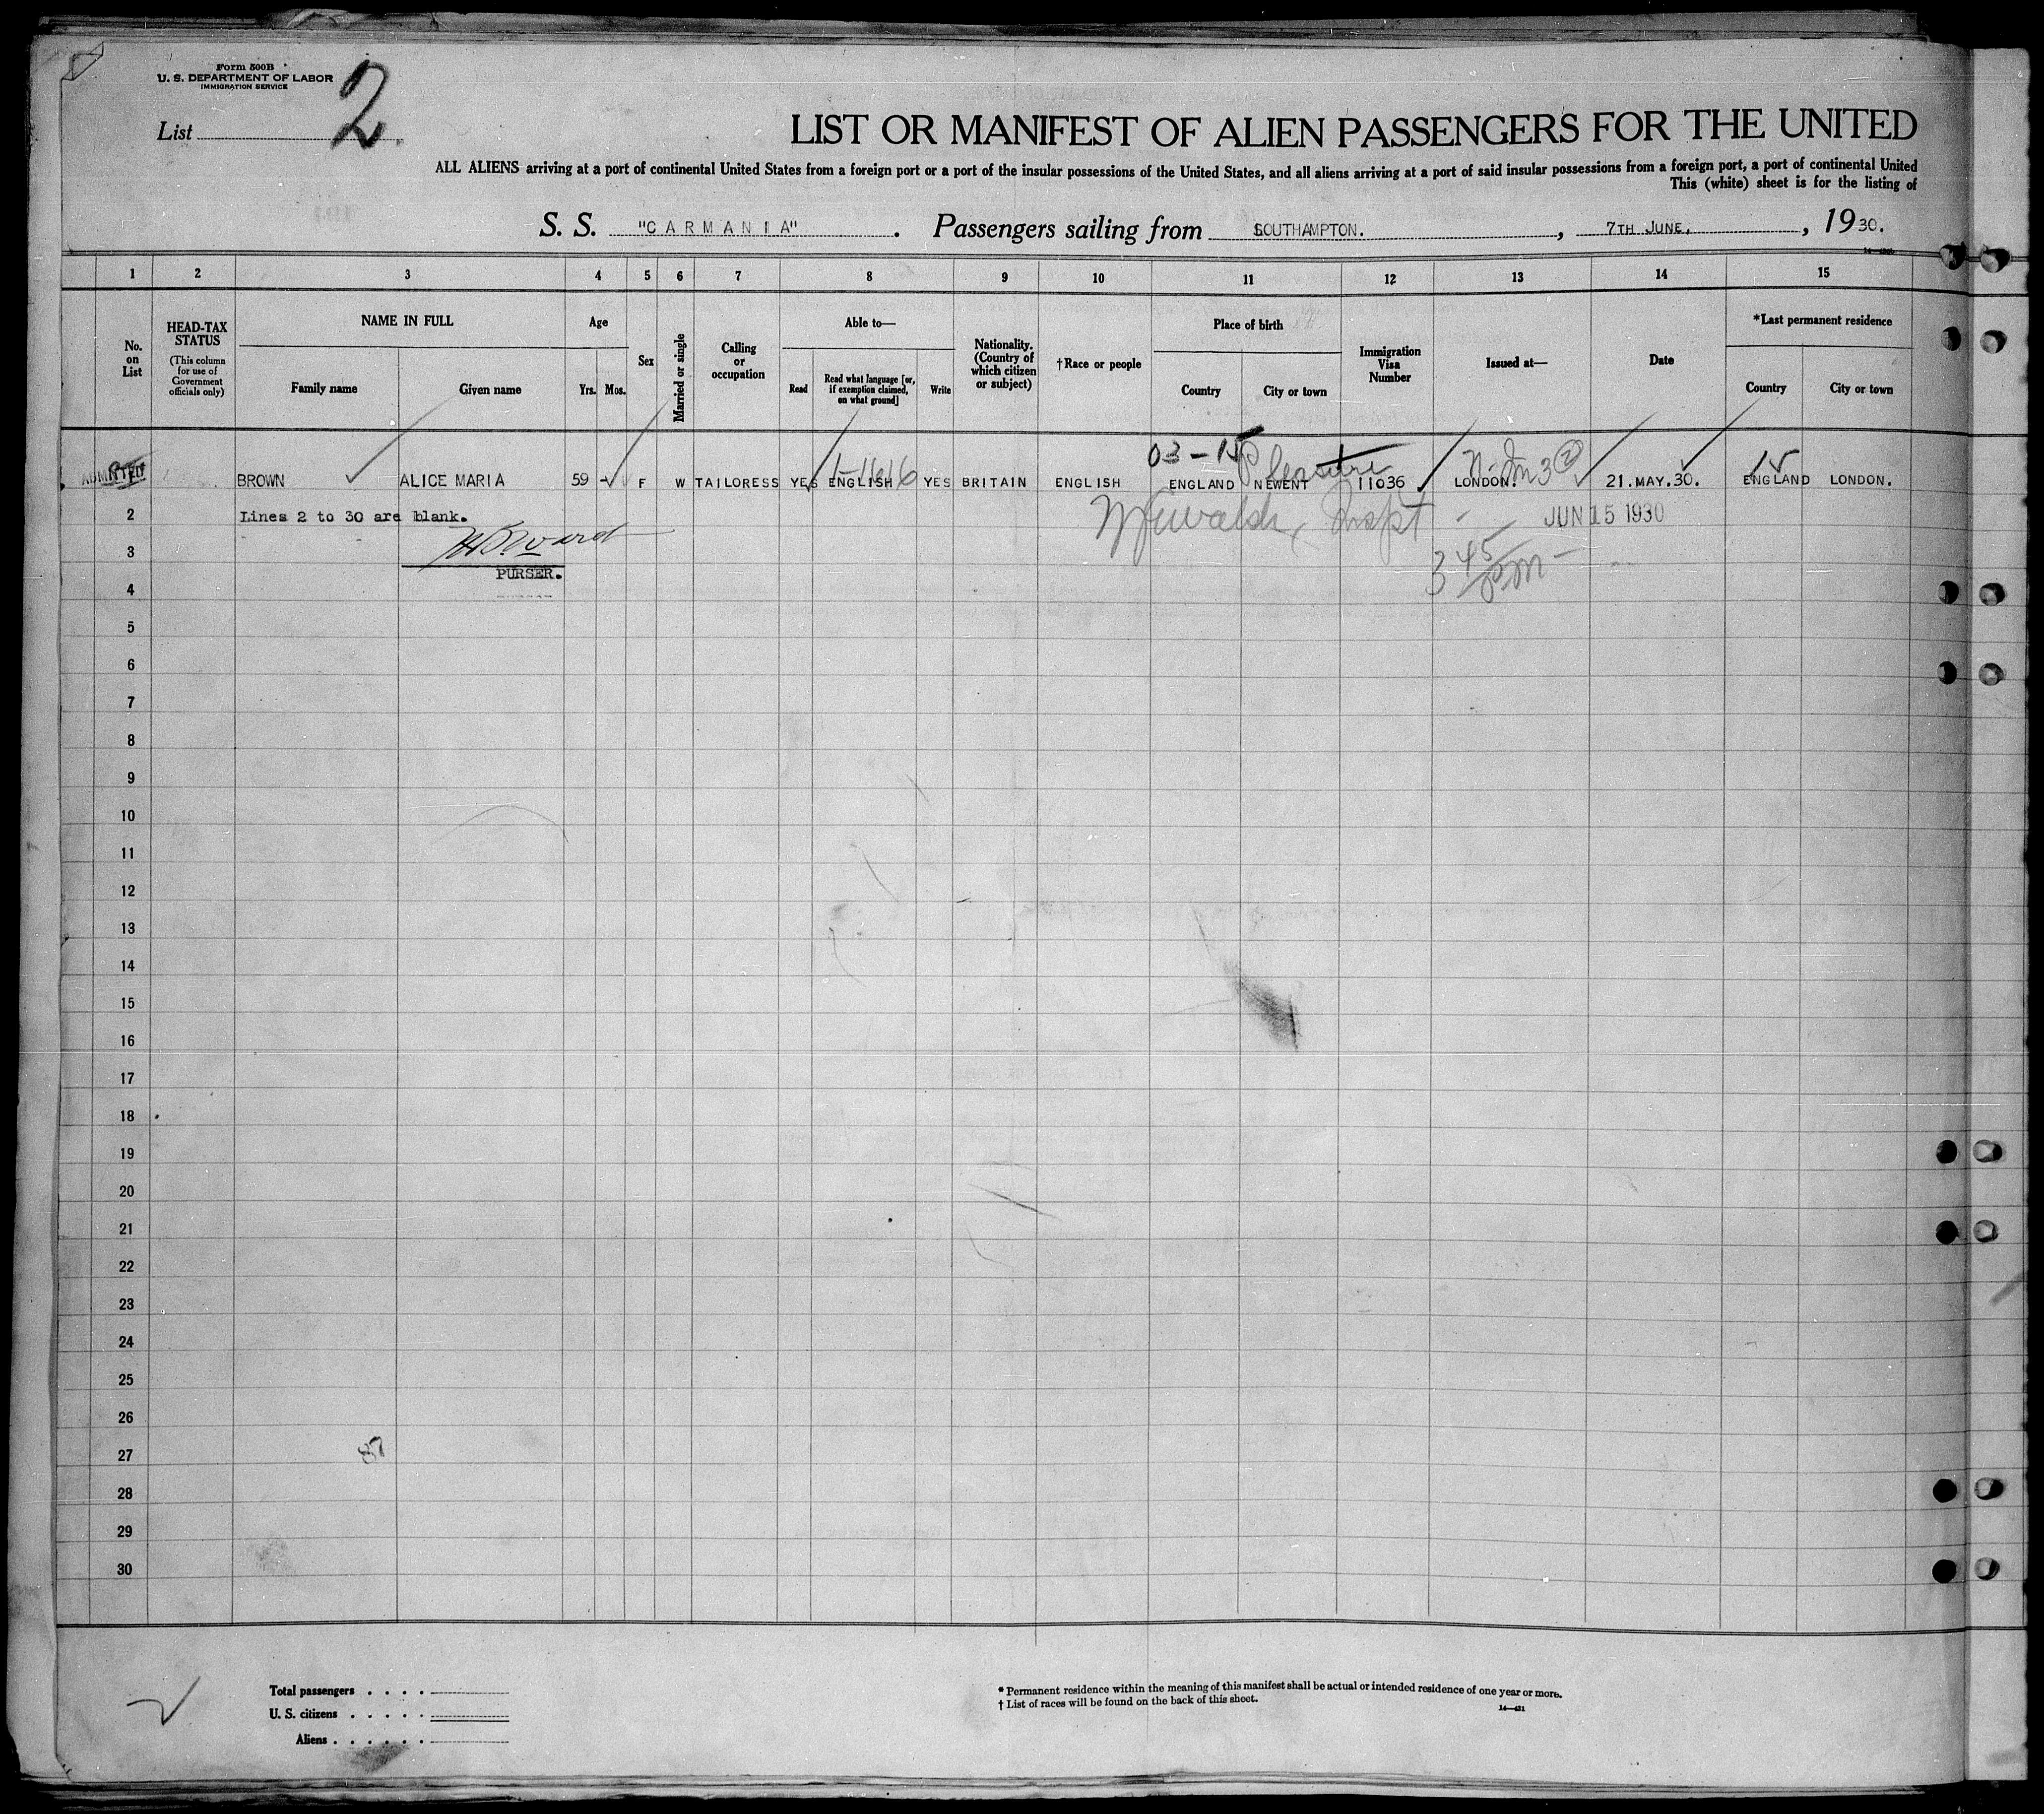 Form 500B
U. S. DEPARTMENT OF LABOR
IMMIGRATION SERVICE
List 2
LIST OR MANIFEST OF ALIEN PASSENGERS FOR THE UNITED
ALL ALIENS arriving at a port of continental United States from a foreign port or a port of the insular possessions of the United States, and all aliens arriving at a port of said insular possessions from a foreign port, a port of continental United
This (white) sheet is for the listing of
S. S. "CARMANIA". Passengers sailing from SOUTHAMPTON., 7TH JUNE., 1930.
1 2 3 4 5 6 7 8 9 10 11 12 13 14 15
No. on List
HEAD-TAX STATUS (This column for use of Government officials only)
NAME IN FULL
Family name Given name
Age
Yrs. Mos.
Sex
Married or single
Calling or occupation
Able to—
Read Read what language [or, if exemption claimed, on what ground] Write
Nationality. (Country of which citizen or subject)
†Race or people
Place of birth
Country City or town
Immigration Visa Number
Issued at—
Date
*Last permanent residence
Country City or town
03-15
ADMITTED BROWN ALICE MARIA 59 - F W TAILORESS YES ENGLISH YES BRITAIN ENGLISH ENGLAND NEWENT 11036 LONDON. 21.MAY.30. ENGLAND LONDON.
2 Lines 2 to 30 are blank. Inspt JUN 15 1930
3 3 45 PM
PURSER.
4
5
6
7
8
9
10
11
12
13
14
15
16
17
18
19
20
21
22
23
24
25
26
27 87
28
29
30
Total passengers . . . .
U. S. citizens . . . . .
Aliens . . . . . .
* Permanent residence within the meaning of this manifest shall be actual or intended residence of one year or more.
† List of races will be found on the back of this sheet.